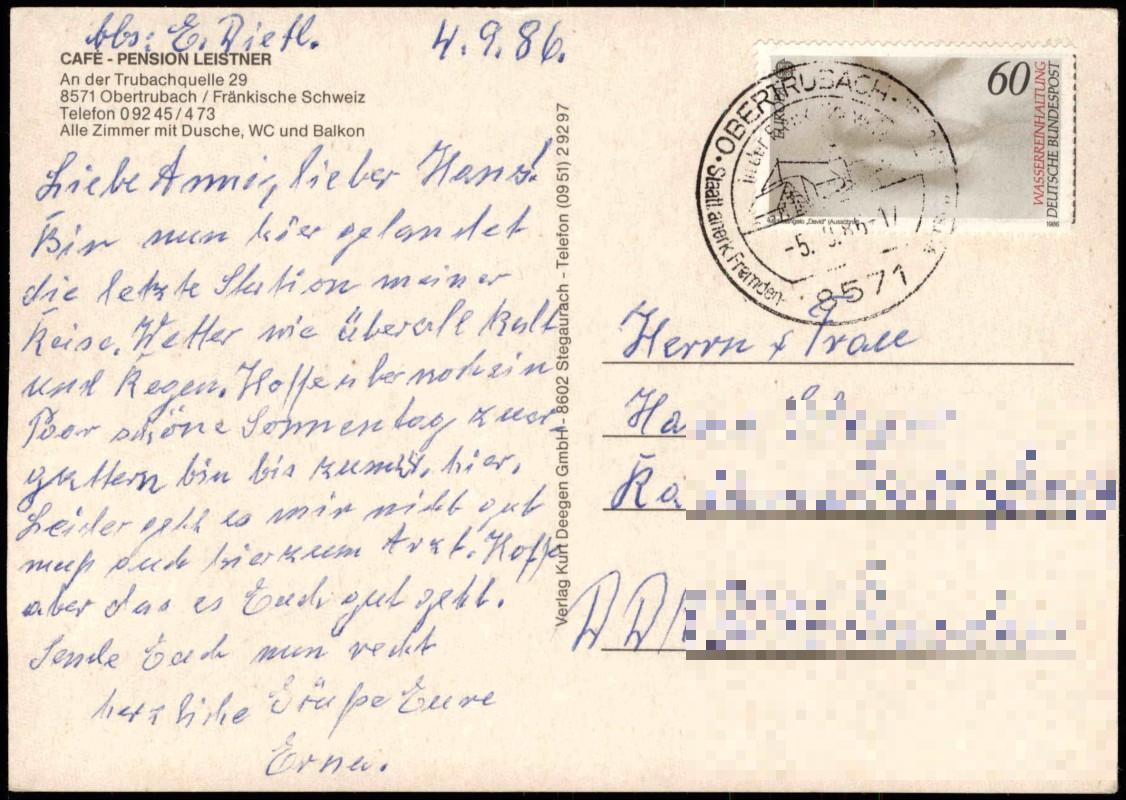 Abs: E. Dietl. 4.9.86.
CAFÉ - PENSION LEISTNER
An der Trubachquelle 29
8571 Obertrubach / Fränkische Schweiz
Telefon 0 92 45 / 4 73
Alle Zimmer mit Dusche, WC und Balkon
Liebe Anni, lieber Hans!
Bin nun hier gelandet
die letzte Station meiner
Reise. Wetter wie überall kalt
und Regen. Hoffe aber noch ein
Paar schöne Sonnentag zu er-
gattern bin bis zum hier.
Leider geht es mir nicht gut
muß auch hier zum Arzt. Hoffe
aber das es Euch gut geht.
Sende Euch nun recht
herzliche Grüße Eure
Erna.
Verlag Kurt Deegen GmbH - 8602 Stegaurach - Telefon (09 51) 2 92 97
60
WASSERREINHALTUNG
DEUTSCHE BUNDESPOST
EUROPA
1986
OBERTRUBACH
Staatl. anerk. Fremden-
-5. 9.86-17
8571
Herrn + Frau
Ha
Ka
DDR